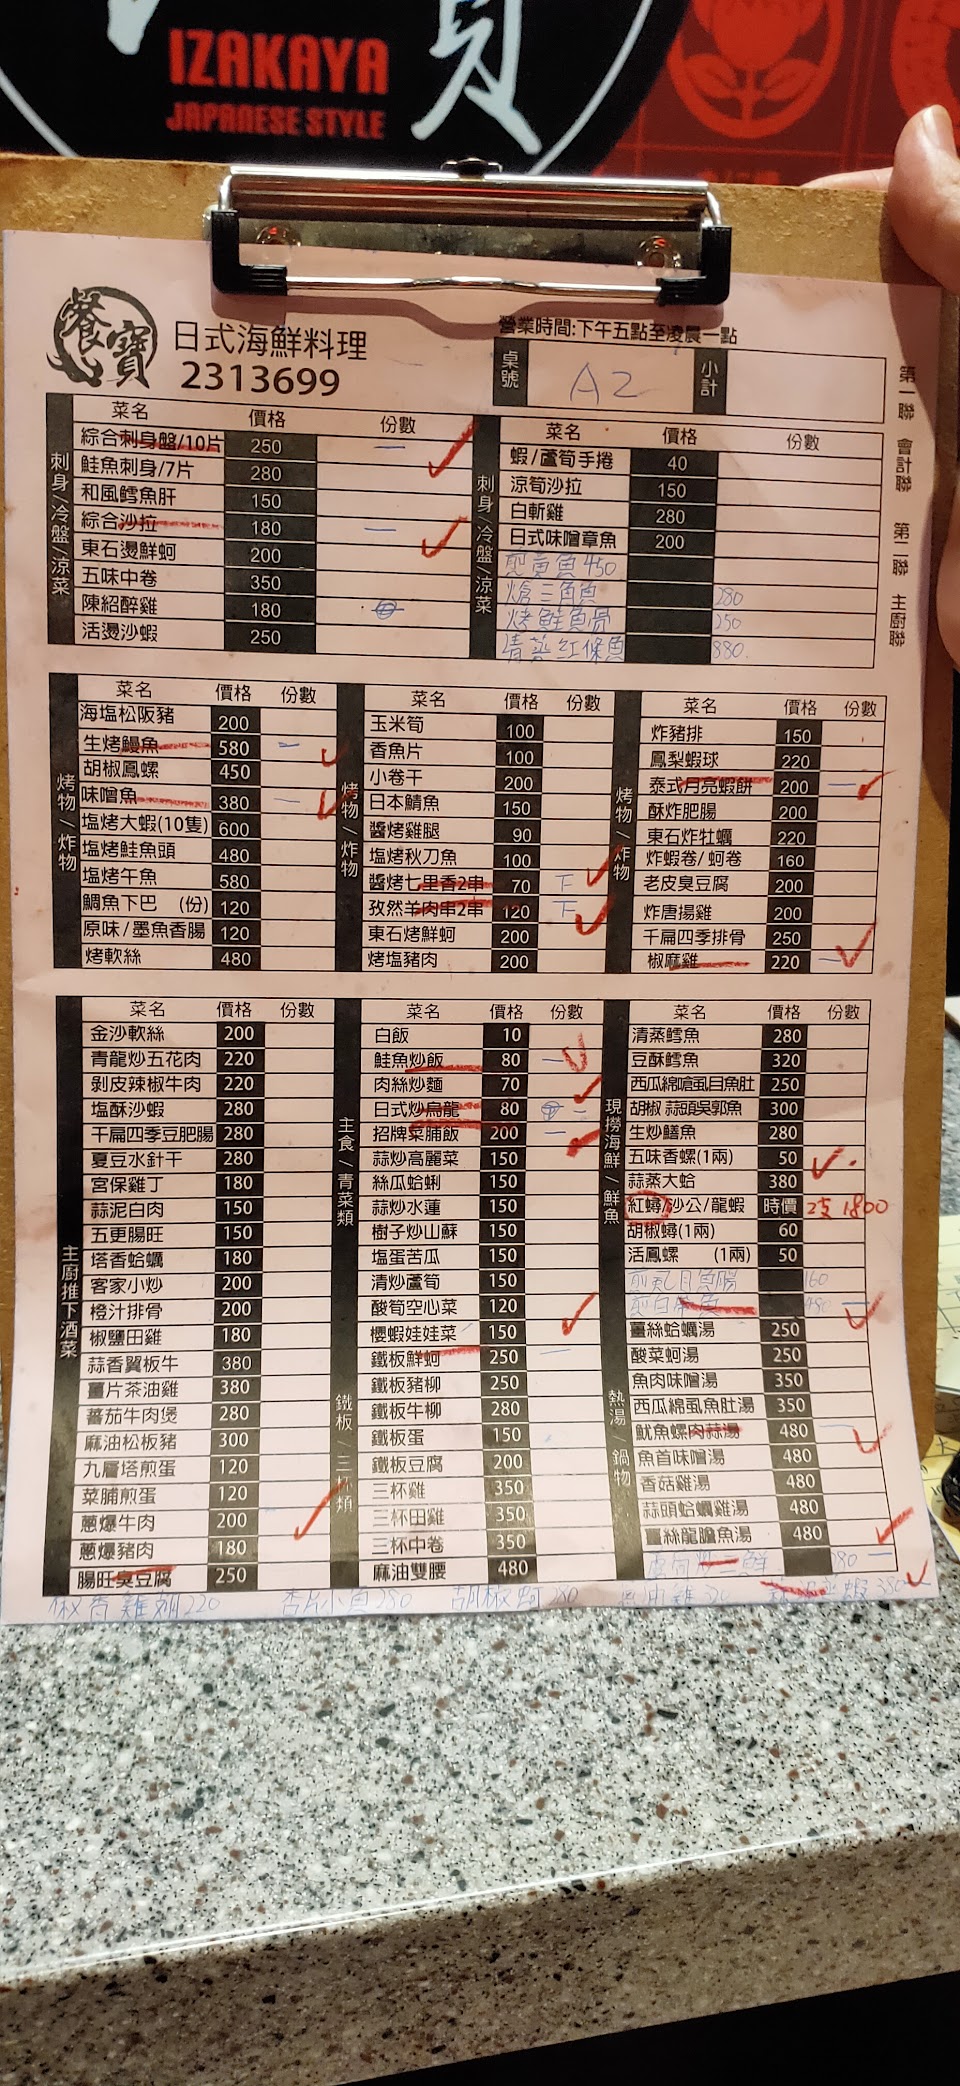 IZAKAYA
JAPANESE STYLE
餐寶
日式海鮮料理
2313699
營業時間:下午五點至凌晨一點
桌號 A2 小計
第一聯 會計聯 第二聯 主廚聯
刺身/冷盤/涼菜
菜名 價格 份數
綜合刺身盤/10片 250 一
鮭魚刺身/7片 280
和風鱈魚肝 150
綜合沙拉 180 一
東石燙鮮蚵 200
五味中卷 350
陳紹醉雞 180
活燙沙蝦 250
刺身/冷盤/涼菜
菜名 價格 份數
蝦/蘆筍手捲 40
涼筍沙拉 150
白斬雞 280
日式味噌章魚 200
煎黃魚 450
三角魚 280
烤鮭魚骨 250
清蒸紅條魚 880
烤物/炸物
菜名 價格 份數
海塩松阪豬 200
生烤鰻魚 580 一
胡椒鳳螺 450
味噌魚 380 一
塩烤大蝦(10隻) 600
塩烤鮭魚頭 480
塩烤午魚 580
鯛魚下巴 (份) 120
原味/墨魚香腸 120
烤軟絲 480
烤物/炸物
菜名 價格 份數
玉米筍 100
香魚片 100
小卷干 200
日本鯖魚 150
醬烤雞腿 90
塩烤秋刀魚 100
醬烤七里香2串 70 下
孜然羊肉串2串 120 下
東石烤鮮蚵 200
烤塩豬肉 200
烤物/炸物
菜名 價格 份數
炸豬排 150
鳳梨蝦球 220
泰式月亮蝦餅 200 一
酥炸肥腸 200
東石炸牡蠣 220
炸蝦卷/蚵卷 160
老皮臭豆腐 200
炸唐揚雞 200
千扁四季排骨 250
椒麻雞 220 一
主廚推下酒菜
菜名 價格 份數
金沙軟絲 200
青龍炒五花肉 220
剝皮辣椒牛肉 220
塩酥沙蝦 280
干扁四季豆肥腸 280
夏豆水針干 280
宮保雞丁 180
蒜泥白肉 150
五更腸旺 150
塔香蛤蠣 180
客家小炒 200
橙汁排骨 200
椒鹽田雞 180
蒜香翼板牛 380
薑片茶油雞 380
蕃茄牛肉煲 280
麻油松板豬 300
九層塔煎蛋 120
菜脯煎蛋 120
蔥爆牛肉 200
蔥爆豬肉 180
腸旺臭豆腐 250
主食/青菜類
菜名 價格 份數
白飯 10
鮭魚炒飯 80 一
肉絲炒麵 70
日式炒烏龍 80 一
招牌菜脯飯 200 一
蒜炒高麗菜 150
絲瓜蛤蜊 150
蒜炒水蓮 150
樹子炒山蘇 150
塩蛋苦瓜 150
清炒蘆筍 150
酸筍空心菜 120
櫻蝦娃娃菜 150
鐵板/三杯類
鐵板鮮蚵 250 一
鐵板豬柳 250
鐵板牛柳 280
鐵板蛋 150
鐵板豆腐 200
三杯雞 350
三杯田雞 350
三杯中卷 350
麻油雙腰 480
現撈海鮮/鮮魚
菜名 價格 份數
清蒸鱈魚 280
豆酥鱈魚 320
西瓜綿嗆虱目魚肚 250
胡椒 蒜頭吳郭魚 300
生炒鱔魚 280
五味香螺(1兩) 50
蒜蒸大蛤 380
紅蟳/沙公/龍蝦 時價 2支 1800
胡椒蟳(1兩) 60
活鳳螺 (1兩) 50
煎虱目魚腸 160
煎白魚 480 一
熱湯/鍋物
薑絲蛤蠣湯 250
酸菜蚵湯 250
魚肉味噌湯 350
西瓜綿虱魚肚湯 350
魷魚螺肉蒜湯 480 一
魚首味噌湯 480
香菇雞湯 480
蒜頭蛤蠣雞湯 480
薑絲龍膽魚湯 480
炒三鮮 280 一
椒香雞翅 220 杏片小魚 280 胡椒蚵 280 雞 320 380